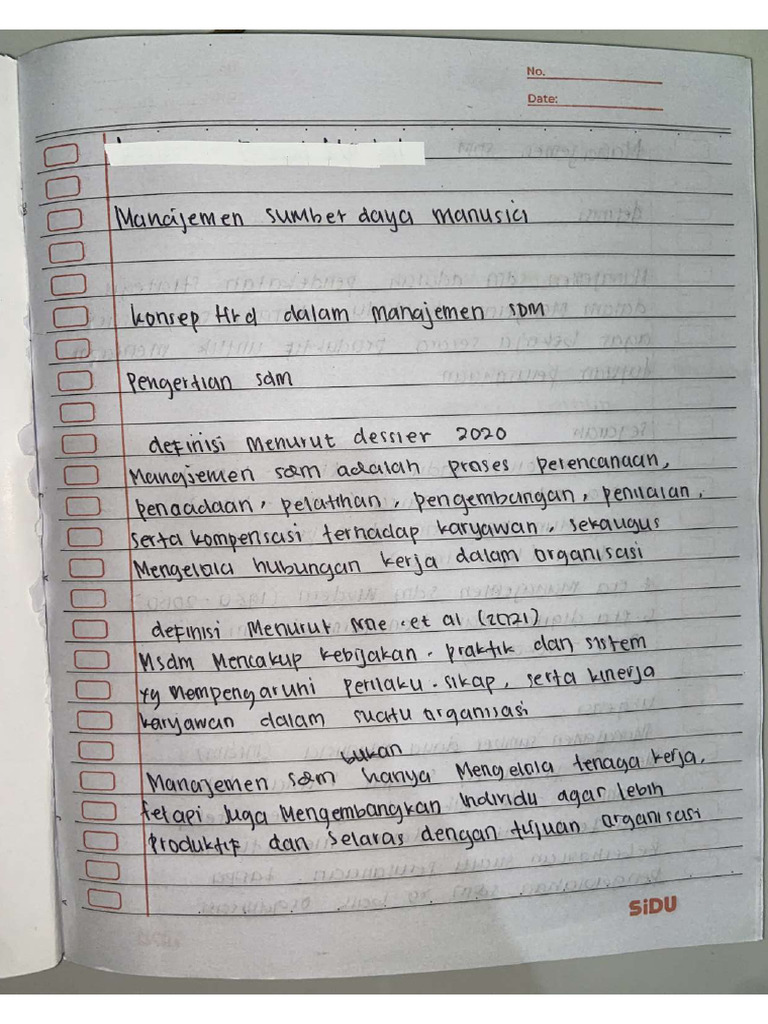 No.
Date:
Manajemen sumber daya manusia
konsep Hrd dalam manajemen SDM
Pengertian sdm
definisi Menurut dessler 2020
Manajemen sdm adalah proses perencanaan,
pengadaan, pelatihan, pengembangan, penilaian,
serta kompensasi terhadap karyawan, sekaligus
Mengelola hubungan kerja dalam organisasi
definisi Menurut et al (2021)
Msdm Mencakup kebijakan, praktik dan sistem
yg mempengaruhi perilaku, sikap, serta kinerja
karyawan dalam suatu organisasi
bukan
Manajemen sdm hanya Mengelola tenaga kerja,
tetapi juga Mengembangkan individu agar lebih
produktif dan selaras dengan tujuan organisasi
SiDU